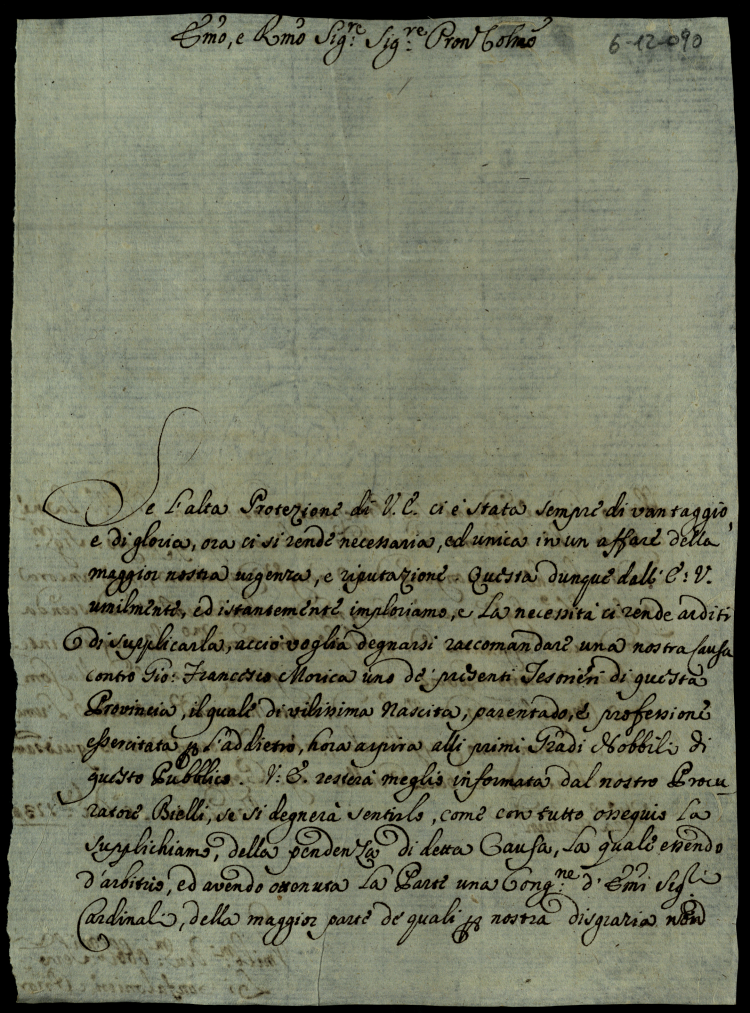 Emo, e Rmo Sig.re Sig.re Pron Colmo
6-12-090
Se l'alta Protezione di V. E. ci è stata sempre di vantaggio,
e di gloria, ora ci si rende necessaria, ed unica in un affare della
maggior nostra urgenza, e riputazione. Questa dunque dall' E: V.
umilmente, ed istantemente imploriamo, e la necessità ci rende arditi
di supplicarla, acciò voglia degnarsi raccomandare una nostra Causa
contro Gio: Francesco Morica uno de' presenti Tesorieri di questa
Provincia, il quale di vilissima Nascita, parentado, e professione
essercitata p l'addietro, hora aspira alli primi Gradi Nobbili di
questo Pubblico. V: E. resterà meglio informata dal nostro Procu-
ratore Bielli, se si degnerà sentirlo, come con tutto ossequio la
supplichiamo, della pendenza di detta Causa, la quale essendo
d'arbitrio, ed avendo ottenuta la Parte una Cong.ne d' Emi Sig.ri
Cardinali, della maggior parte de quali p nostra disgrazia non